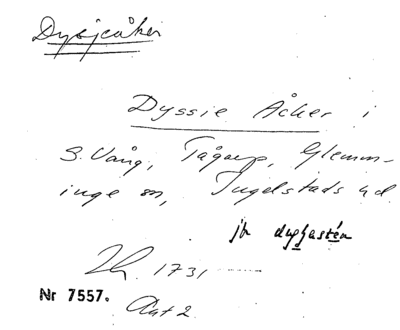 Dysjeåker
Dyssie Åker i
S. Vång, Tågarp, Glemm-
inge sn, Ingelstads hd.
jb
1731
Nr 7557.
Akt 2